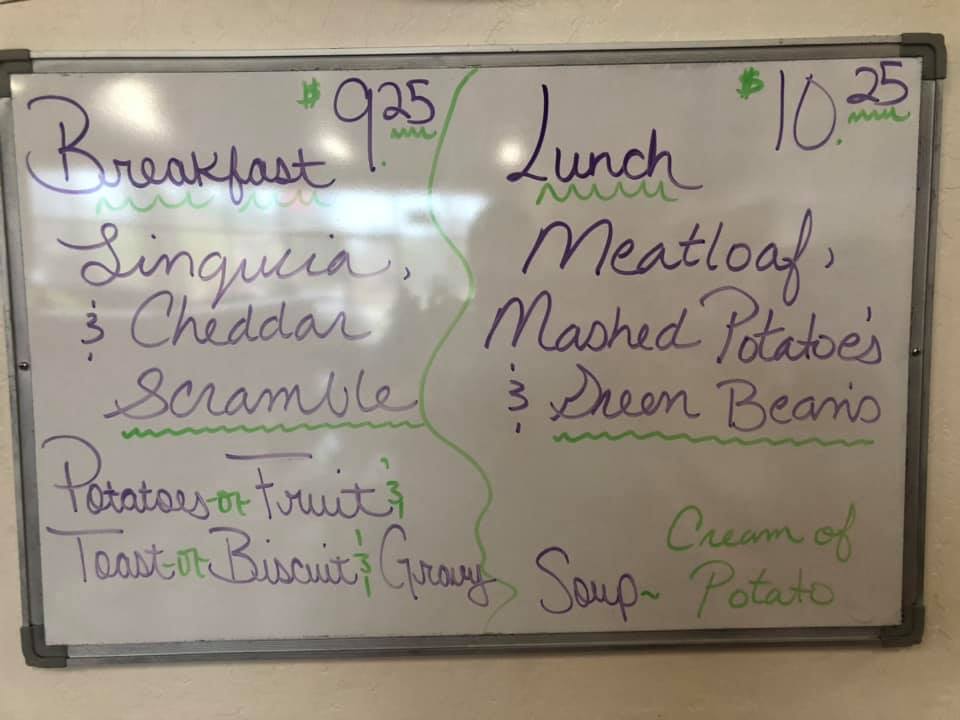 Breakfast $9.25
Linguicia,
& Cheddar
Scramble
Potatoes or Fruit &
Toast or Biscuit & Gravy
Lunch $10.25
Meatloaf,
Mashed Potatoe's
& Green Bean's
Soup~ Cream of
Potato